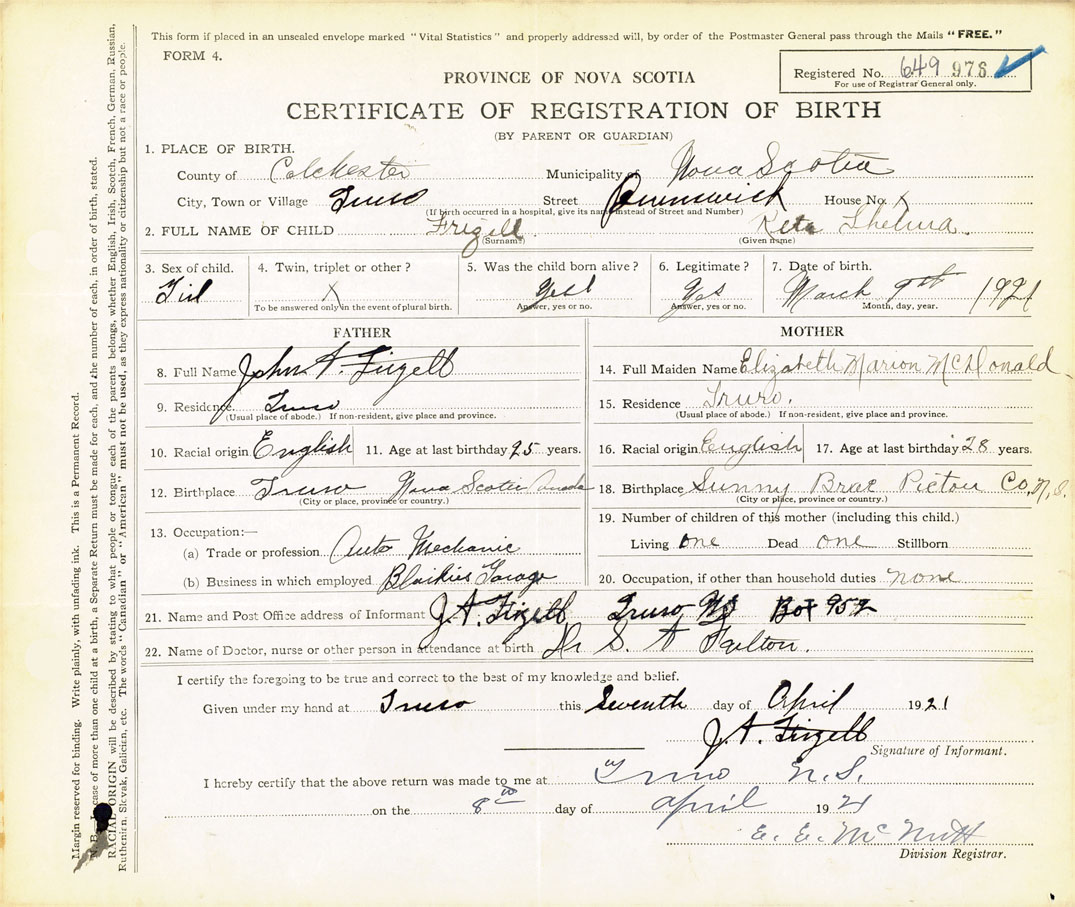 This form if placed in an unsealed envelope marked "Vital Statistics" and properly addressed will, by order of the Postmaster General pass through the Mails "FREE."
FORM 4.
Registered No. 649 978
For use of Registrar General only.
PROVINCE OF NOVA SCOTIA
CERTIFICATE OF REGISTRATION OF BIRTH
(BY PARENT OR GUARDIAN)
1. PLACE OF BIRTH.
County of Colchester Municipality of Nova Scotia
City, Town or Village Truro Street Brunswick House No. X
(If birth occurred in a hospital, give its name instead of Street and Number)
2. FULL NAME OF CHILD Frizell Reta Thelma.
(Surname) (Given name)
3. Sex of child. 4. Twin, triplet or other? 5. Was the child born alive? 6. Legitimate? 7. Date of birth.
Girl X Yes Yes March 9th 1921
To be answered only in the event of plural birth. Answer, yes or no. Answer, yes or no. Month, day, year.
FATHER
8. Full Name John A. Frizell
9. Residence Truro
(Usual place of abode.) If non-resident, give place and province.
10. Racial origin English 11. Age at last birthday 25 years.
12. Birthplace Truro Nova Scotia Canada
(City or place, province or country.)
13. Occupation:—
(a) Trade or profession Auto Mechanic
(b) Business in which employed Blaikies Garage
MOTHER
14. Full Maiden Name Elizabeth Marion McDonald.
15. Residence Truro.
(Usual place of abode.) If non-resident, give place and province.
16. Racial origin English 17. Age at last birthday 28 years.
18. Birthplace Sunny Brae Pictou Co, N.S.
(City or place, province or country.)
19. Number of children of this mother (including this child.)
Living one Dead one Stillborn
20. Occupation, if other than household duties none
21. Name and Post Office address of Informant J.A. Frizell Truro NS Box 952
22. Name of Doctor, nurse or other person in attendance at birth Dr S. A Fulton.
I certify the foregoing to be true and correct to the best of my knowledge and belief.
Given under my hand at Truro this Seventh day of April 1921
J.A. Frizell
Signature of Informant.
I hereby certify that the above return was made to me at Truro N.S.
on the 8th day of April 1921
E. E. McNutt
Division Registrar.
Margin reserved for binding. Write plainly, with unfading ink. This is a Permanent Record.
case of more than one child at a birth, a Separate Return must be made for each, and the number of each, in order of birth, stated.
RACIAL ORIGIN will be described by stating to what people or tongue each of the parents belongs, whether English, Irish, Scotch, French, German, Russian,
Ruthenian, Slovak, Galician, etc. The words "Canadian" or "American" must not be used, as they express nationality or citizenship but not a race or people.